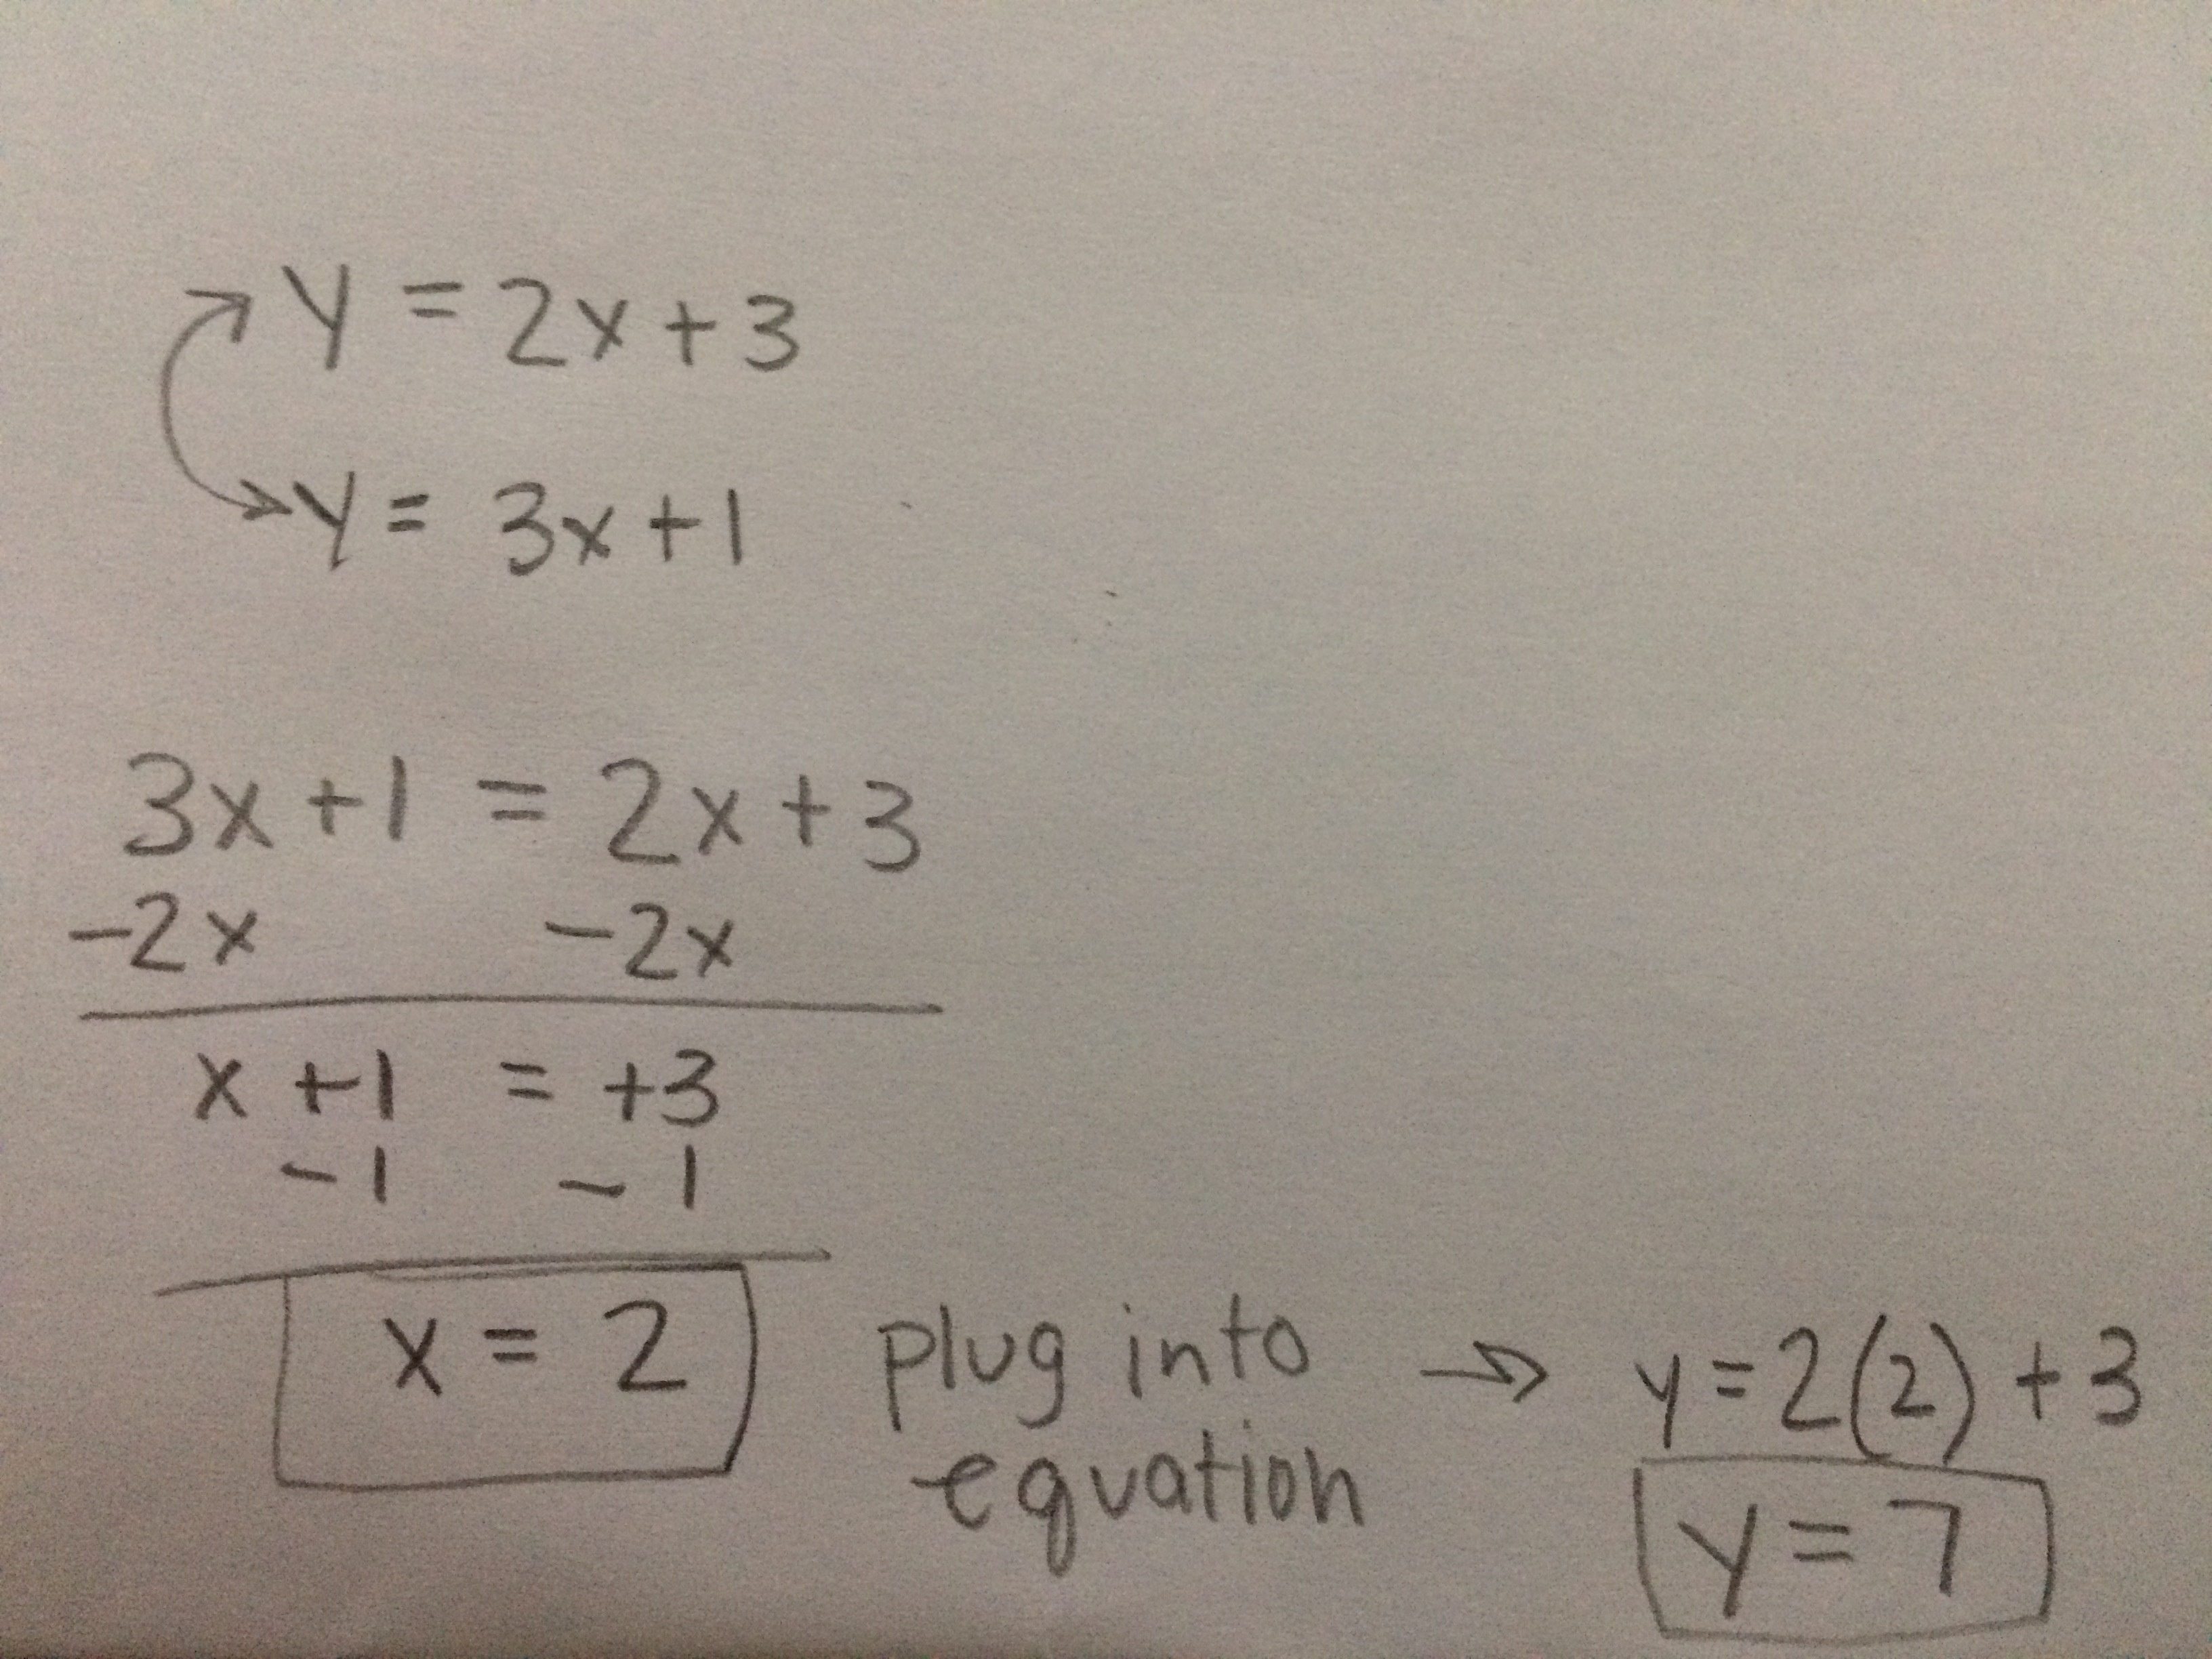 y = 2x + 3
y = 3x + 1
3x + 1 = 2x + 3
-2x -2x
x + 1 = +3
-1 -1
x = 2
plug into
equation
→ y = 2(2) + 3
y = 7